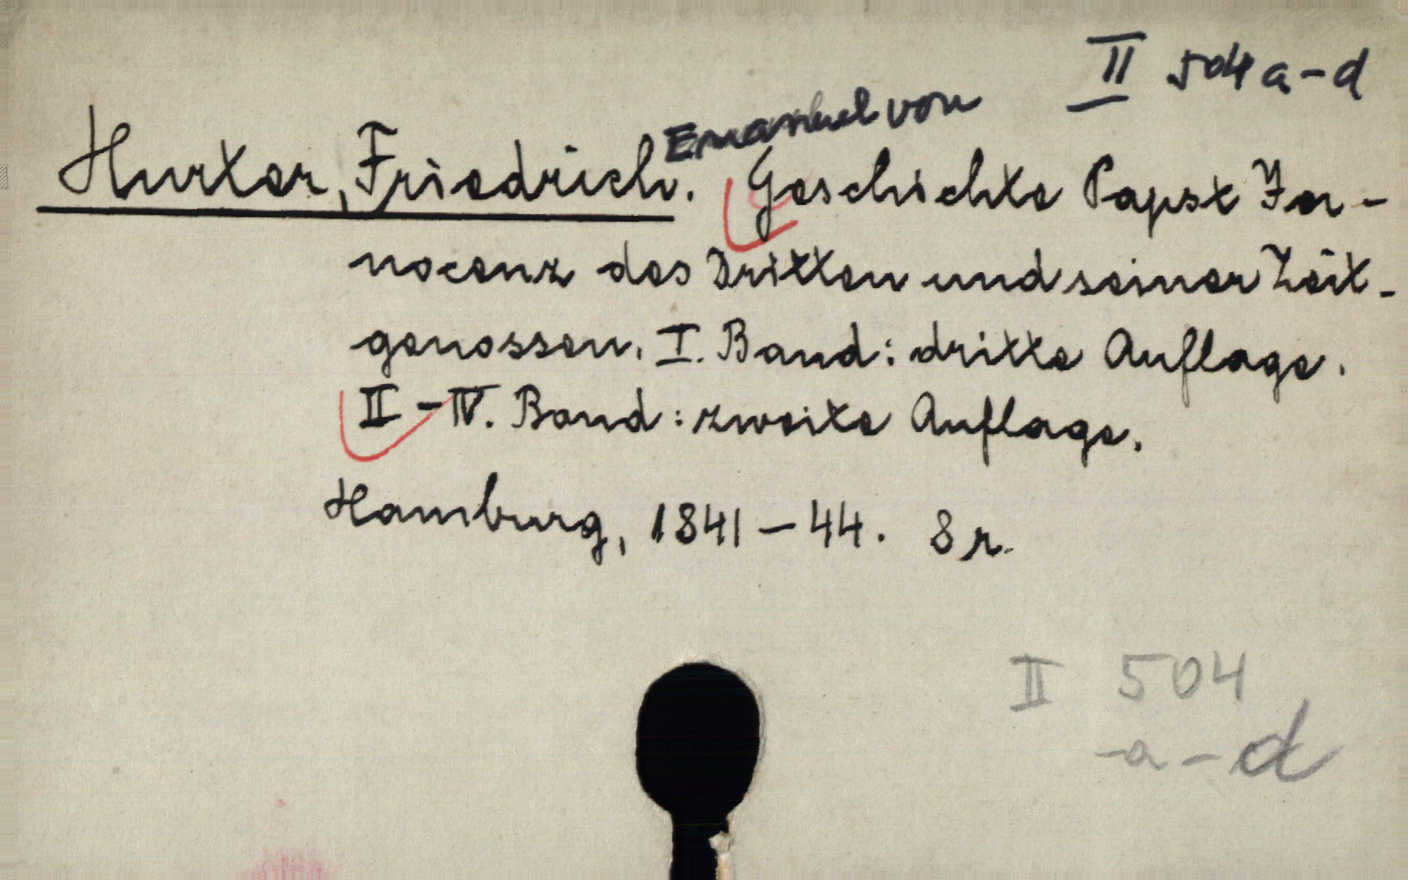 II 504 a-d
Emanuel von
Hurter, Friedrich. Geschichte Papst In-
nocenz des Dritten und seiner Zeit-
genossen. I. Band: dritte Auflage.
II-IV. Band: zweite Auflage.
Hamburg, 1841-44. 8r.
II 504
-a-d